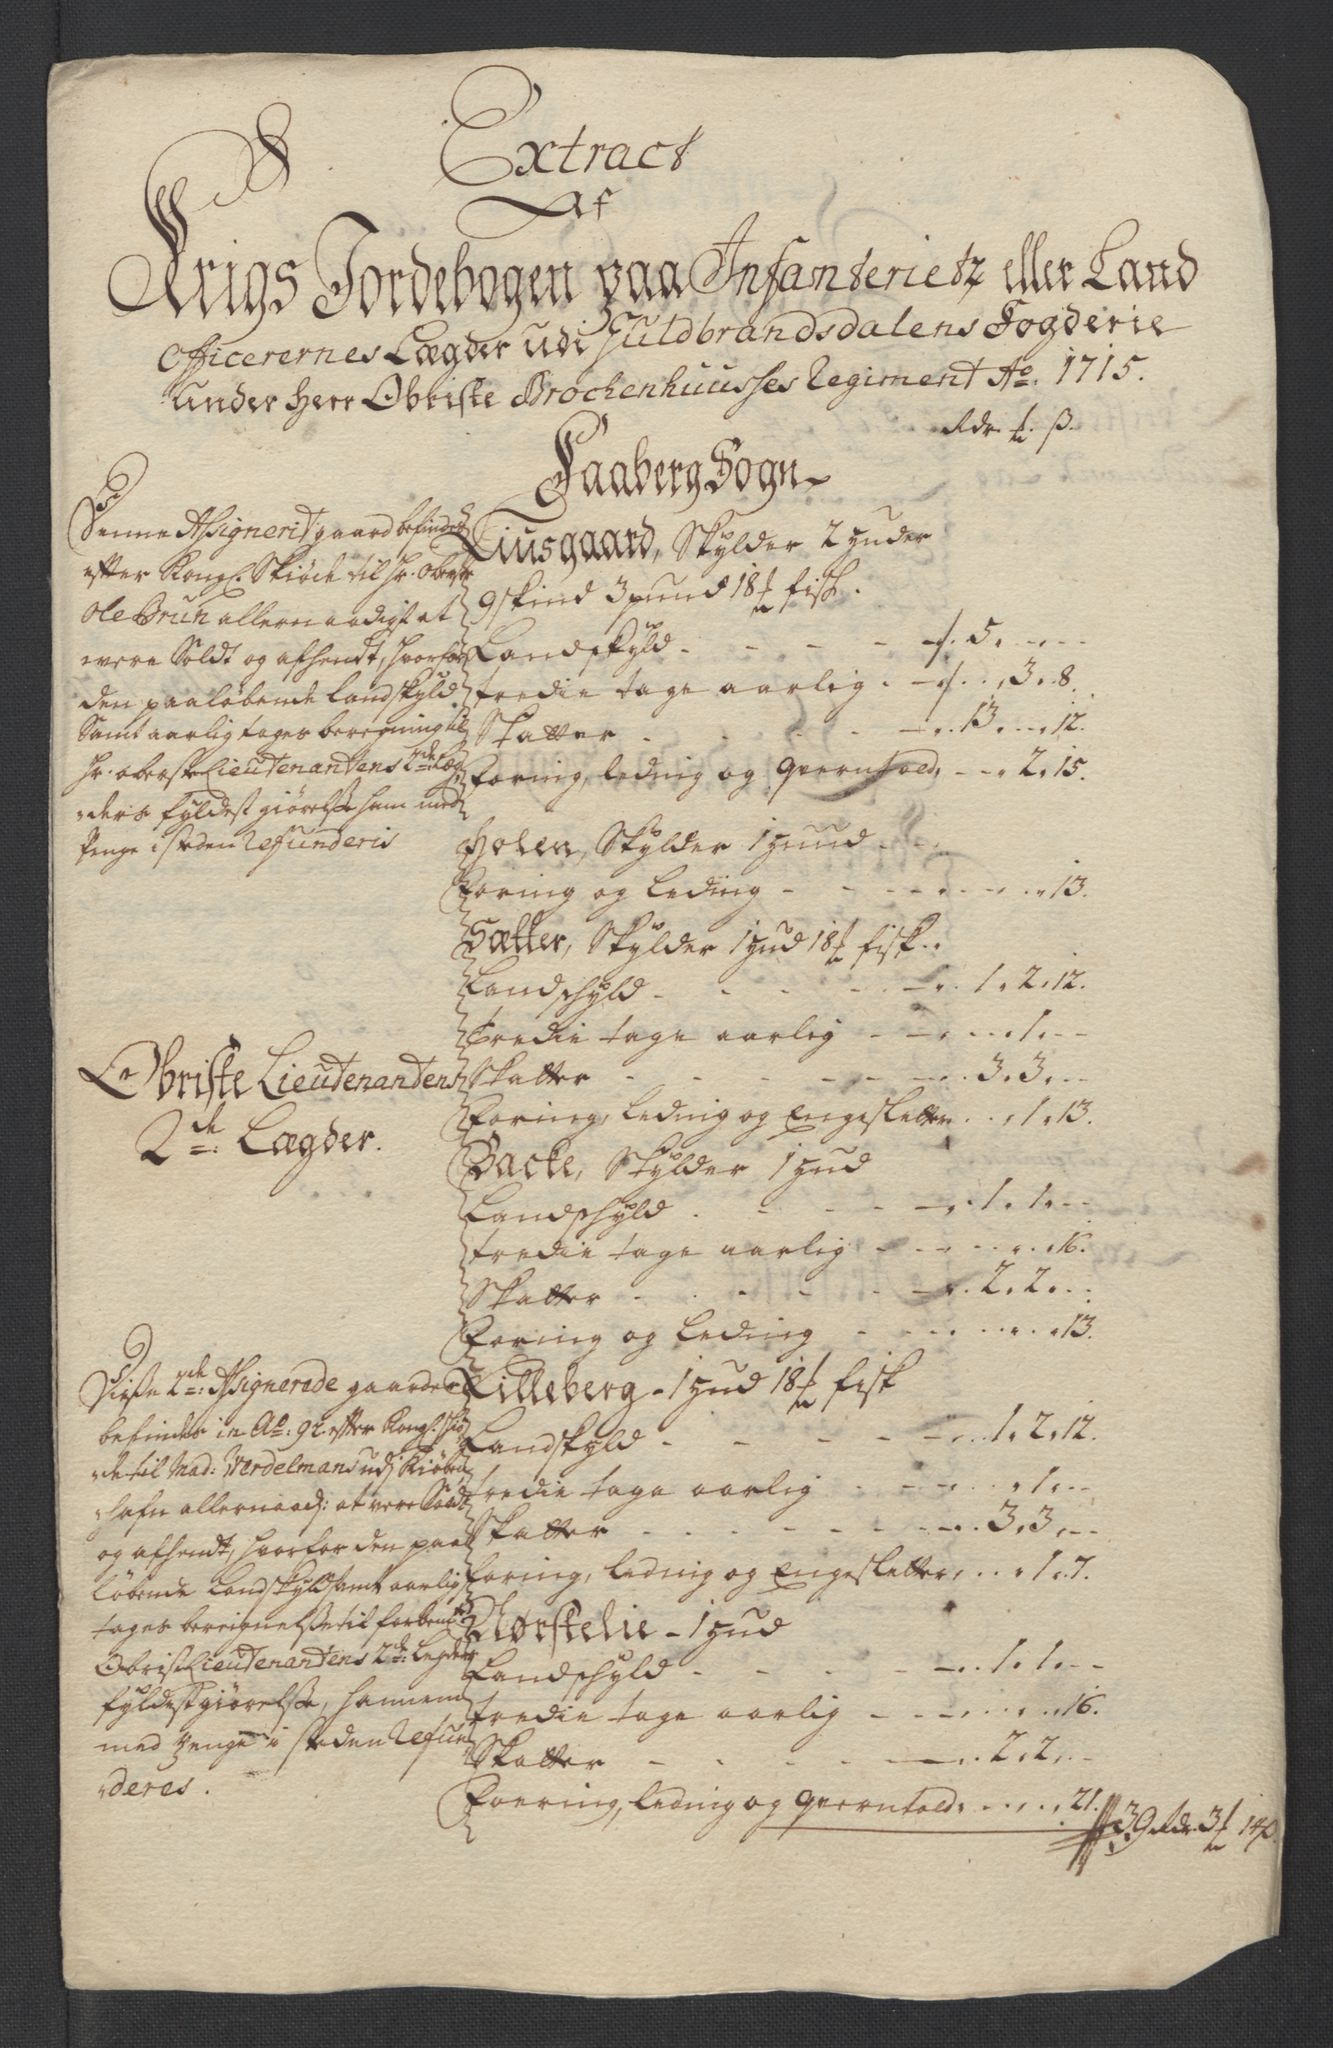 Extract
Af
Krigs Jordebogen paa Infanterietz eller Land
Officerernes Lægder udi Guldbrandsdalens Fogderie
under Herr Obriste Brochenhuusses Regiment Ao. 1715.
Rdr. ₰. ß.
Faaberg Sogn
Denne Assignerit gaard befindes
efter Kongl. Skiöde til Hr. Oberste
Ole Brun allernaadigst at
were Soldt og afhendt, hvorfor
den paaløbende landskyld
Samt aarlig tages beregning til
Hr. oberste Lieutenantens 2de Læg
ders fyldest giørelse ham med
Penge i steden Refunderis
Liusgaard, Skylder 2 huder
9 skind 3 pund 18 ₰ fisk.
Landskyld - - - 5. - -
tredie tage aarlig - - . 3. 8.
Skatter - - - 13. - 12.
foring, ledning og qvernhold, - - 2. 15.
Holen, Skylder 1 huud
Foring og leding - - - 13.
Sætter, Skylder 1 hud 18 ₰ fisk.
Landschyld - - - 1. 2. 12.
Tredie tage aarlig - - - 1. -
Skatter - - - 3. 3. -
Foring, ledning og Engesletter - . 1. 13.
Obriste Lieutenantens
2de Lægder.
Backe, Skylder 1 hud
Landschyld - - - 1. 1. -
tredie tage aarlig - - - 16.
Skatter - - - 2. 2. -
Foring og leding - - - 13.
Disse 2de Assignerede gaarder
befindes in Ao: 92 efter Kongl. skiö
de til Mad: Werdelmans udj Kiöben
hafn allernaad: at vere Soldt
og afhendt, hvorfor den paa
løbende Landskyld samt aarlig
tages beregnelse til forbente
Obrist Lieutenantens 2de Legders
fyldest giørelse, hannem
med penge i steden Refun
deres.
Lilleberg - 1 hud 18 ₰ fisk
Landskyld - - - 1. 2. 12.
tredie tage aarlig - - - 1. -
Skatter - - - 3. 3. -
foring, ledning og Engesletter, . . 1. 7.
Thorstelie - 1 hud
Landschyld - - - 1. 1. -
tredie tage aarlig - - - 16.
Skatter - - - 2. 2. -
Foering, leding og qvernhold, - - 21.
39 Rdr. 3 ₰ 14 ß.